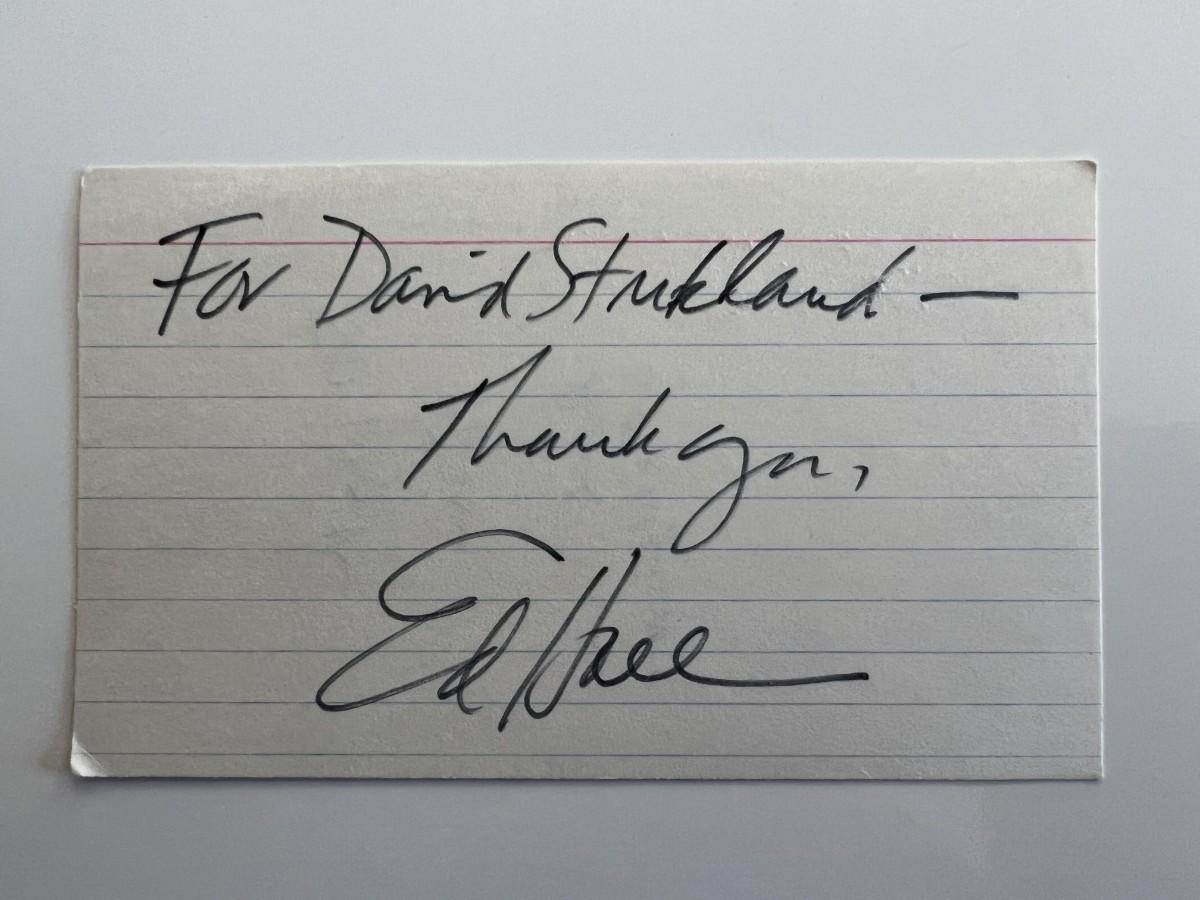 For David Strickland —
Thank you,
Ed Hall